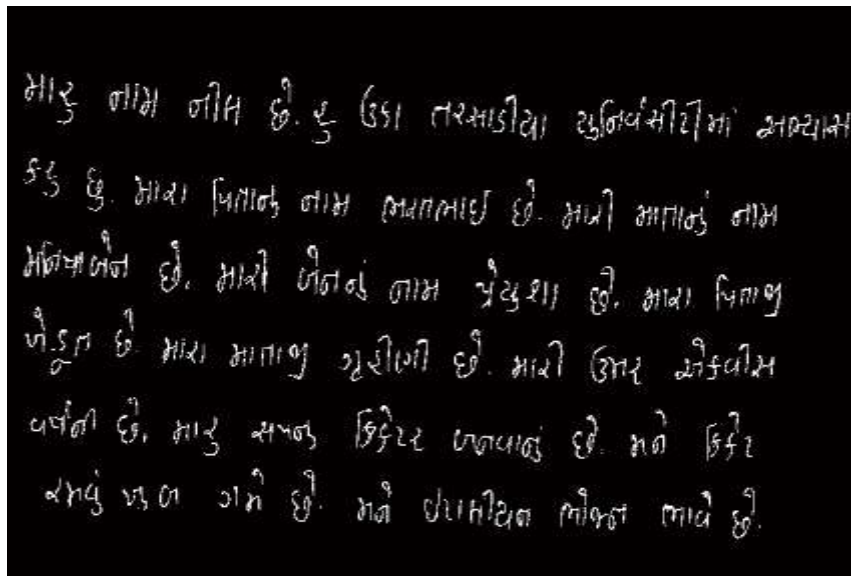 મારૂ નામ નીલ છે. હુ ઉકા તરસાડીયા યુનિર્વસીટીમાં અભ્યાસ
કરુ છુ. મારા પિતાનુ નામ ભરતભાઇ છે. મારી માતાનું નામ
છે. મારી બેનનું નામ છે. મારા પિતાજી
ખેડૂત છે. મારા માતાજી ગૃહીણી છે. મારી ઉંમર એકવીસ
વર્ષની છે. મારુ સપનુ ક્રિકેટર બનવાનું છે. મને ક્રિકેટ
રમવું ખુબ ગમે છે. મને ભોજન ભાવે છે.